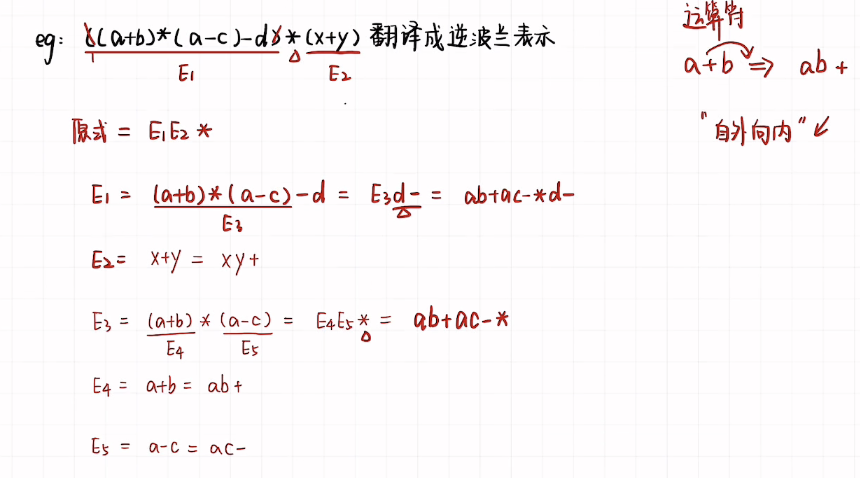 eg: ((a+b)*(a-c)-d)*(x+y) 翻译成逆波兰表示
E₁ E₂
运算符
a+b ⇒ ab+
"自外向内"↙
原式 = E₁E₂*
E₁ = (a+b)*(a-c)-d = E₃d- = ab+ac-*d-
E₃
E₂= x+y = xy+
E₃ = (a+b)*(a-c) = E₄E₅* = ab+ac-*
E₄ E₅
E₄ = a+b = ab+
E₅ = a-c = ac-